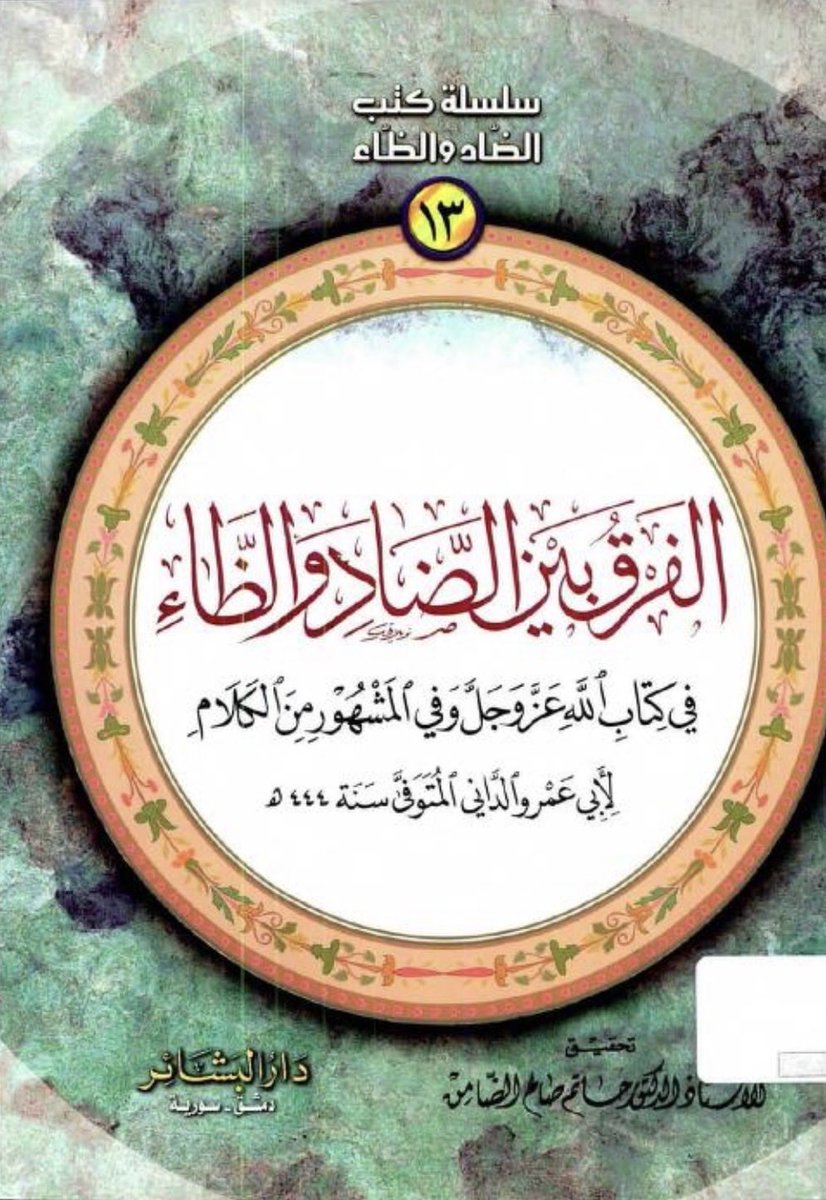 سلسلة كتب
الضّاد والظّاء
١٣
الفَرْقُ بَيْنَ الضَّادِ وَالظَّاءِ
في كِتَابِ ٱللَّهِ عَزَّ وَجَلَّ وَفي ٱلمَشْهُورِ مِنَ ٱلكَلَامِ
لِأَبِي عَمْرٍو ٱلدَّانِي ٱلمُتَوَفَّى سَنَة ٤٤٤ هـ
تحقيق
الأستاذ الدكتور حاتم صالح الضامن
دَارُ البَشَائِر
دمشق - سورية